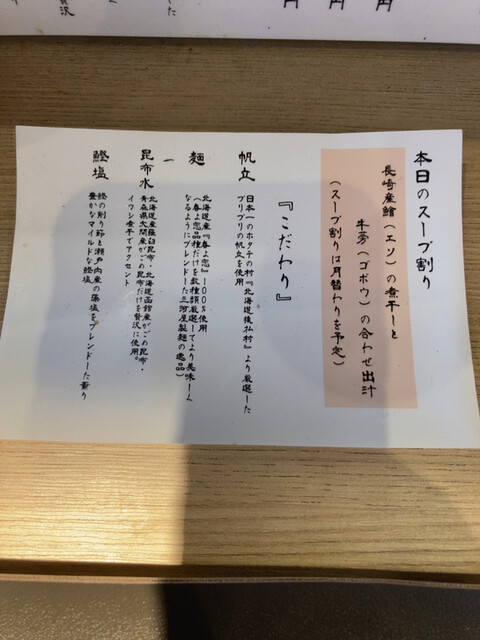 円
円
円
本日のスープ割り
長崎産鱠(エソ)の煮干しと
牛蒡(ゴボウ)の合わせ出汁
(スープ割りは月替わりを予定)
『こだわり』
帆立
日本一のホタテの村『北海道猿払村』より厳選した
プリプリの帆立を使用
麺
北海道産『春よ恋』100%使用
(春よ恋品種だけを数種類厳選してより美味しく
なるようにブレンドした三河屋製麺の逸品)
昆布水
北海道産羅臼昆布・北海道函館産がごめ昆布・
青森県大間産がごめ昆布だけを贅沢に使用。
イワシ煮干でアクセント
鰹塩
鰹の削り節と瀬戸内産の藻塩をブレンドした香り
豊かなマイルドな鰹塩